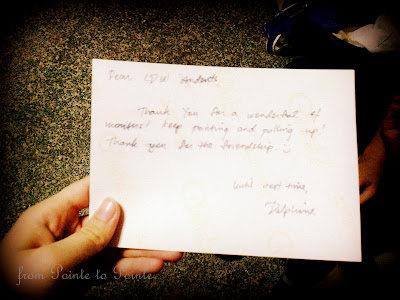 Dear LDW students,
Thank You for a wonderful
months! Keep pointing and pulling up!
Thank you for the friendship :)
Until next time,
Delphine
from Pointe to Pointe